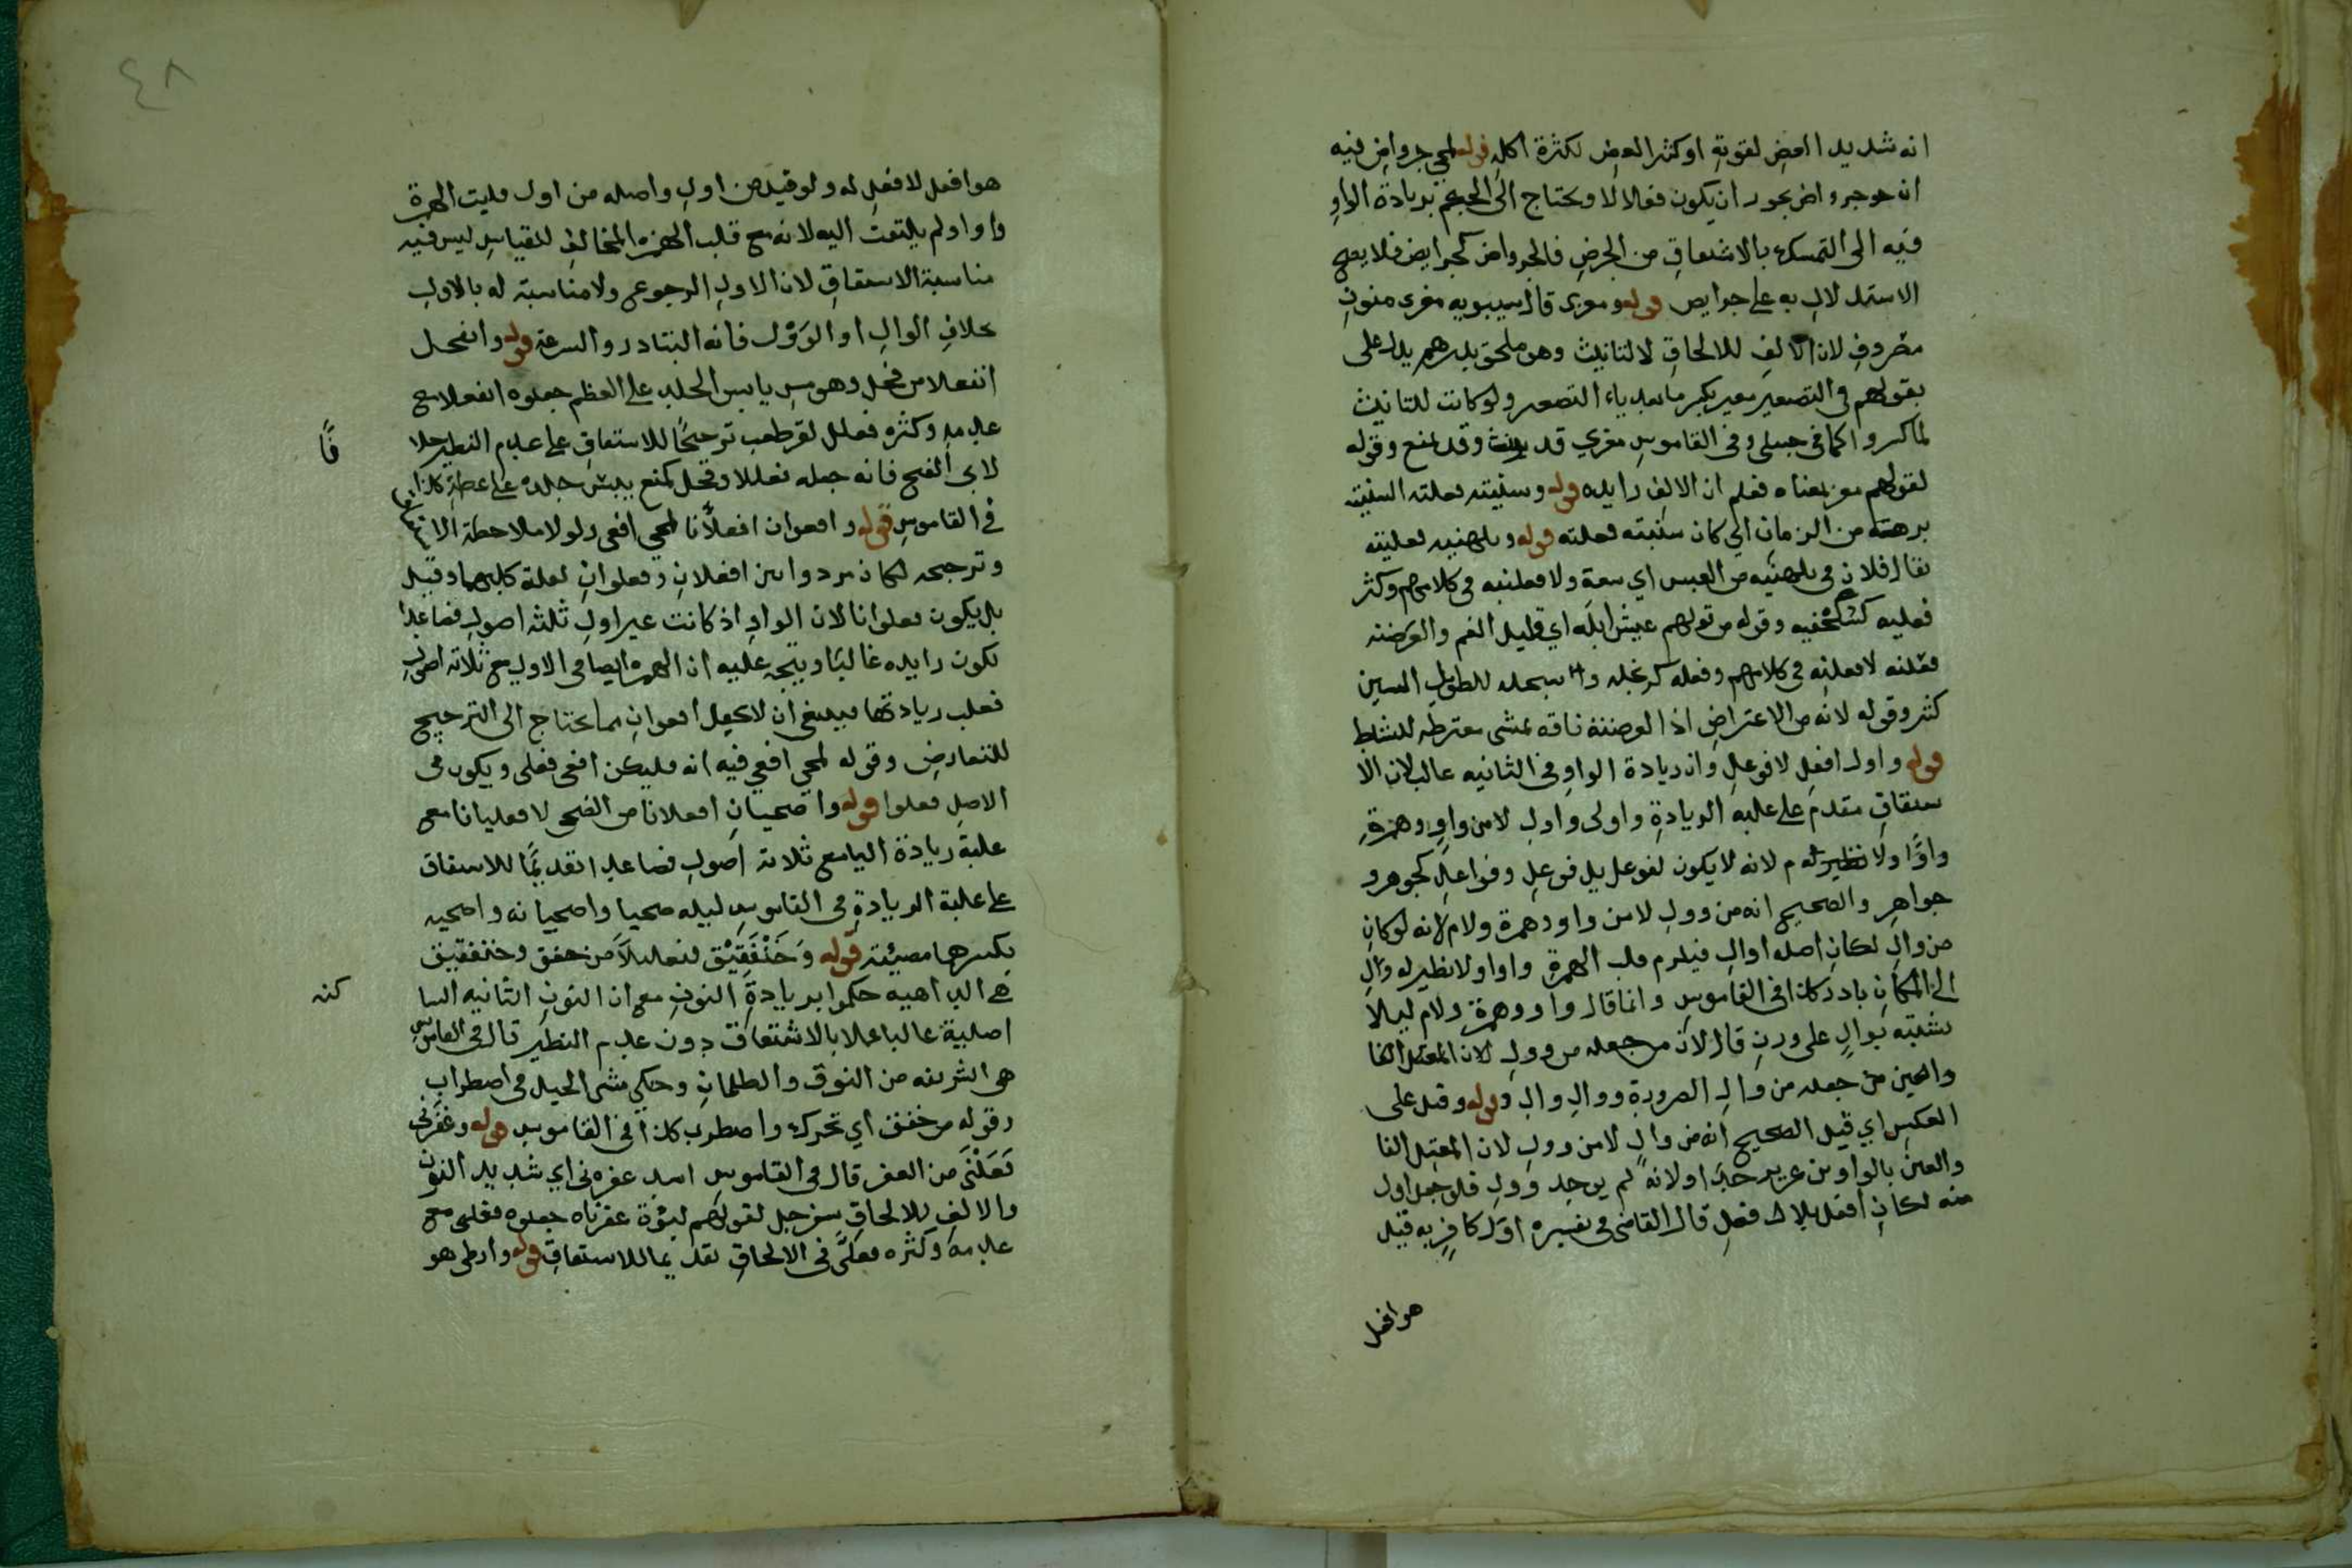 انه شديد العض لقوته او كثير العض لكثرة اكله قوله لمجي جرواض فيه
ان جرواض يجوز ان يكون فعوالا ويحتاج الى الحكم بزيادة الواو
فيه الى التمسك بالاشتقاق من الجرض فالجرواض كجرايض فلا يصح
الاستدلال به على جرايض قوله ومعزى قال سيبويه معزى منون
مصروف لان الالف للالحاق لا للتانيث وهو ملحق بدرهم يدل على
بقولهم في التصغير معيز بكسر ما بعد ياء التصغير ولو كانت للتانيث
لما كسروا كما في حبيلى وفي القاموس معزي قد يونث وقد يمنع وقوله
لقولهم معز بمعناه فعلم ان الالف زايده قوله وسنبته فعلته السنبته
برهته من الزمان اي كان سنبته فعلته قوله وبلهنيه فعلنيه
يقال فلان في بلهنيه من العيش اي سعة ولا فعلنيه في كلامهم وكثر
فعليه وقوله من قولهم عيش ابله اي قليل الغم والعرضنه
فعلنه لا فعلنه في كلامهم وفعله
كثير وقوله لانه من الاعتراض اذ العرضنة ناقه تمشي معترضه للنشاط
قوله واول افعل لا فوعل وان زيادة الواو في الثانيه غالب لان الا
شتقاق مقدم على غلبه الزيادة واولى واول لا من واو وهمزة
واوًا ولا نظير له م لانه لا يكون لفوعل بل فوعل وفواعل كجوهر و
جواهر والصحيح انه من وول لا من واو وهمزة ولام لانه لو كان
من وال لكان اصله اوال فيلزم قلب الهمزة واوا ولا نظير له وال
الى المكان بادر كذا في القاموس وانما قال واو وهمزة ولام ليلا
يشتبه بوال على وزن قال لان من جعله من وول لان المعتل الفا
والعين من جعله من وال الضرورة ووال وال وقوله وقيل على
العكس اي قيل الصحيح انه من وال لا من وول لان المعتل الفا
والعين بالواو من عزيز جدا ولانه لم يوجد وول فلو جعل اول
منه لكان افعل بلا فعل قال القاضي في تفسيره اول كافر به قيل
هو افعل
٤٨
هو افعل لا فعل له ولو قيل من اول واصله من اول قلبت الهمزة
واوا ولم يلتفت اليه لانه مع قلب الهمزه المخالف للقياس ليس فيه
مناسبة الاشتقاق لان الاول الرجوع ولا مناسبته له بالاول
بخلاف الوال او الوؤل فانه التبادر والسرعة قوله وانقحل
انفعلا من قحل وهو من يابس الجلد على العظم جعلوه انفعلا مع
عدمه وكثره فعلل لقرطعب ترجيحًا للاشتقاق على عدم النظير خلا
فًا
لابي الفتح فانه جعله فعللا وقحل كمنع يبس جلده على عظمه كذا
في القاموس قوله وافعوان افعلانا لمجي افعى ولولا ملاحظة الا
وترجيحه لكان مرددا بين افعلان وفعلوان لعلة كليهما وقيل
بل يكون فعلوانا لان الواو اذ كانت غير اول ثلثه اصول فصاعدا
تكون زايده غالبًا ويتجه عليه ان الهمزه ايضا في الاول مع ثلاثه اصول
فعلب زيادتها فينبغي ان لا يجعل افعوان مما يحتاج الى الترجيح
للتعارض وقوله لمجي افعى فيه انه فليكن افعى فعلى ويكون في
الاصل فعلوا قوله واضحيان افعلانا من الضحى لا فعليانا مع
غلبة زيادة اليا مع ثلاثه اصول فصاعدا تقديمًا للاشتقاق
على غلبة الزيادة في القاموس ليله ضحيا واضحيانه واضحيه
بكسرهما مضيئة قوله وَخَنْفَقِيْق فنعليلًا من خفق وخنفقيق
هي الداهيه حكموا بزيادة النون مع ان النون الثانيه السا
كنه
اصلية غالبا عملا بالاشتقاق دون عدم النظير قال في القاموس
هي السريعه من النوق والظلمان وحكي مشى الخيل في اضطراب
وقوله من خفق اي تحرك واضطرب كذا في القاموس قوله وعفرنى
فَعَلْنَى من العفر قال في القاموس اسد عفرنى اي شديد النون
والالف للالحاق بسفرجل لقولهم لبؤة عفرناه جعلوه فعلنى مع
عدمه وكثره فعلّى في الالحاق تقديما للاشتقاق قوله وارطى هو